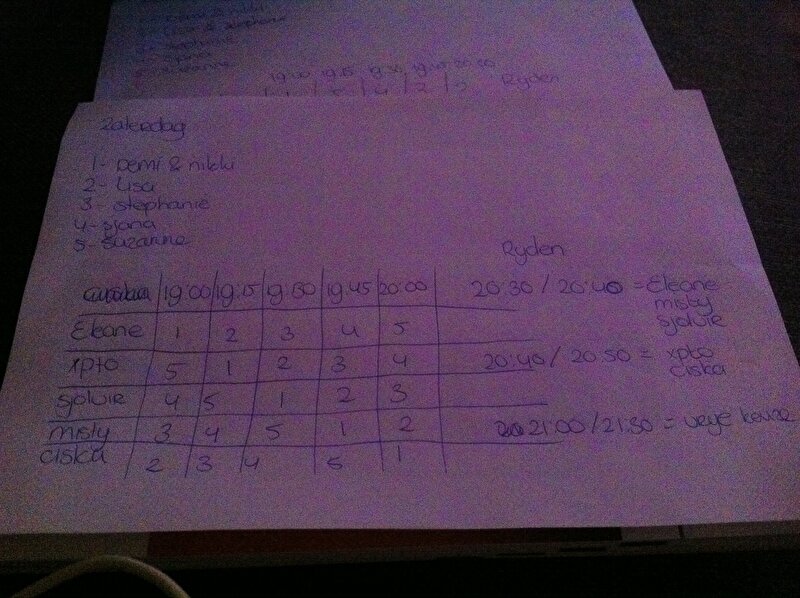 19:00 19:15 19:30 19:45 20:00
Ryden
Zaterdag
1- Demi & nikki
2- Lisa
3- stephanie
4- sjana
5- Suzanne
Ryden
19:00 19:15 19:30 19:45 20:00 20:30 / 20:40 = Eleane
misty
sjolvie
Eleane 1 2 3 4 5
xpto 5 1 2 3 4 20:40 / 20:50 = xpto
ciska
sjolvie 4 5 1 2 3
misty 3 4 5 1 2 21:00 / 21:30 = vrye keuze
ciska 2 3 4 5 1